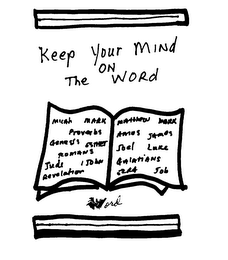 Keep Your MIND
ON
The WORD
MICAH MARK
Proverbs
Genesis ESTHER
ROMANS
Jude 1 JOHN
Revelation
MATTHEW MARK
Amos James
Joel Luke
GALATIANS
EZRA Job
Word